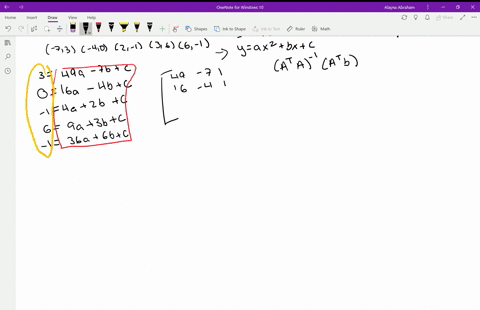 OneNote for Windows 10
Alayna Abraham
Home Insert Draw View Help
Ink to Shape Ink to Text Math
(-7,3) (-4,0) (2,-1) (3,6) (6,-1) → y=ax²+bx+c
(AᵀA)⁻¹(Aᵀb)
3=49a-7b+c
0=16a-4b+c
-1=4a+2b+c
6=9a+3b+c
-1=36a+6b+c
49 -7 1
16 -4 1